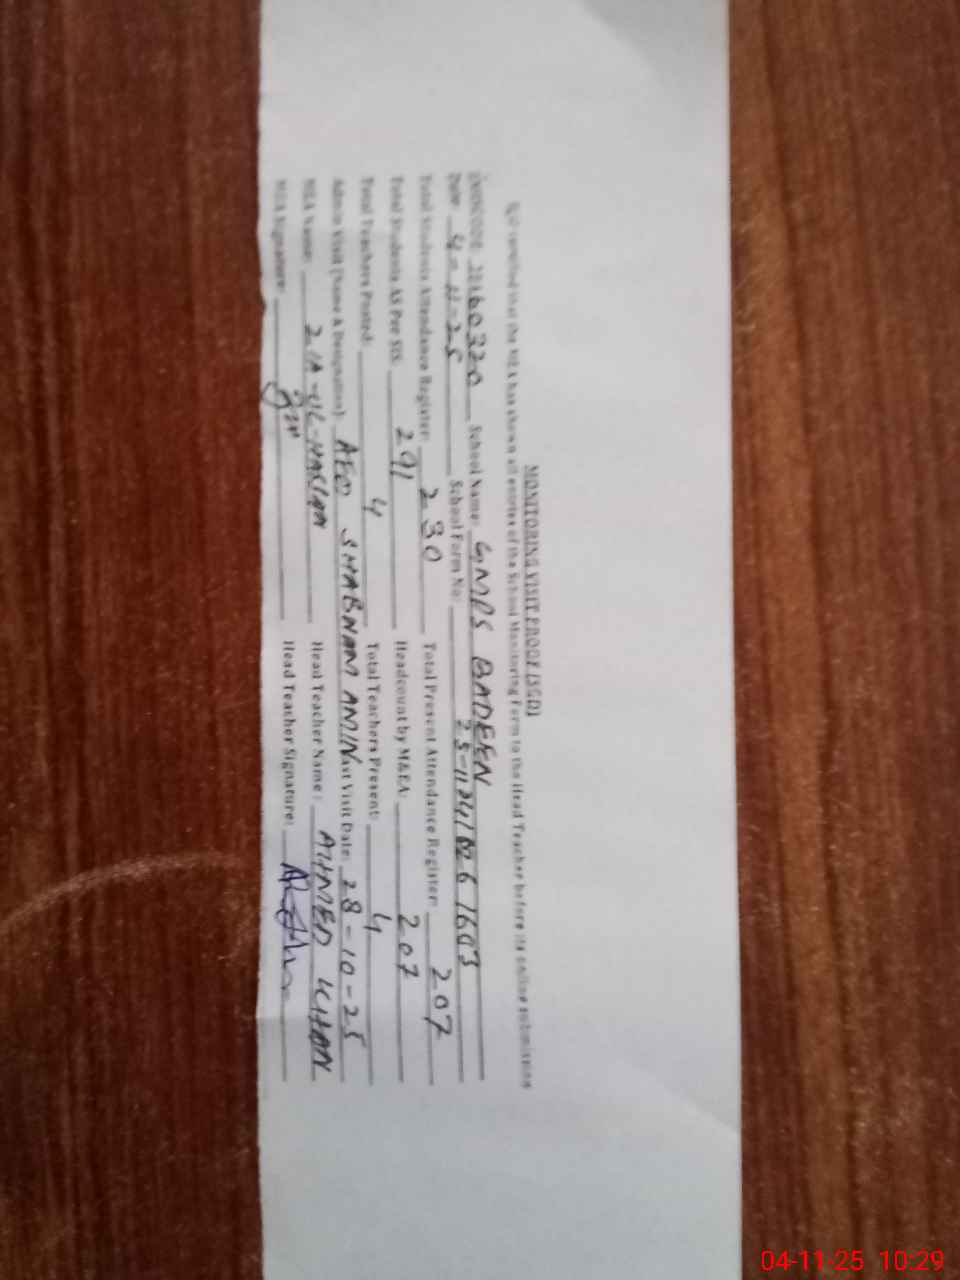 MONITORING VISIT PROOF (SGD)
certified that the MEA has shown all entries of the School Monitoring Form to the Head Teacher before its online submission
School Name: GMPS BADEEN
Date 4-11-25 School Form No:
Total Students Attendance Register: 230 Total Present Attendance Register: 207
Total Students AS Per SIS: 291 Headcount by M&EA: 207
Total Teachers Posted: 4 Total Teachers Present: 4
Admin Visit (Name & Designation): AEO SHABNAM AMIN Last Visit Date: 28-10-25
MEA Name: Head Teacher Name: AHMED KHAN
MEA Signature: Head Teacher Signature:
04-11-25 10:29